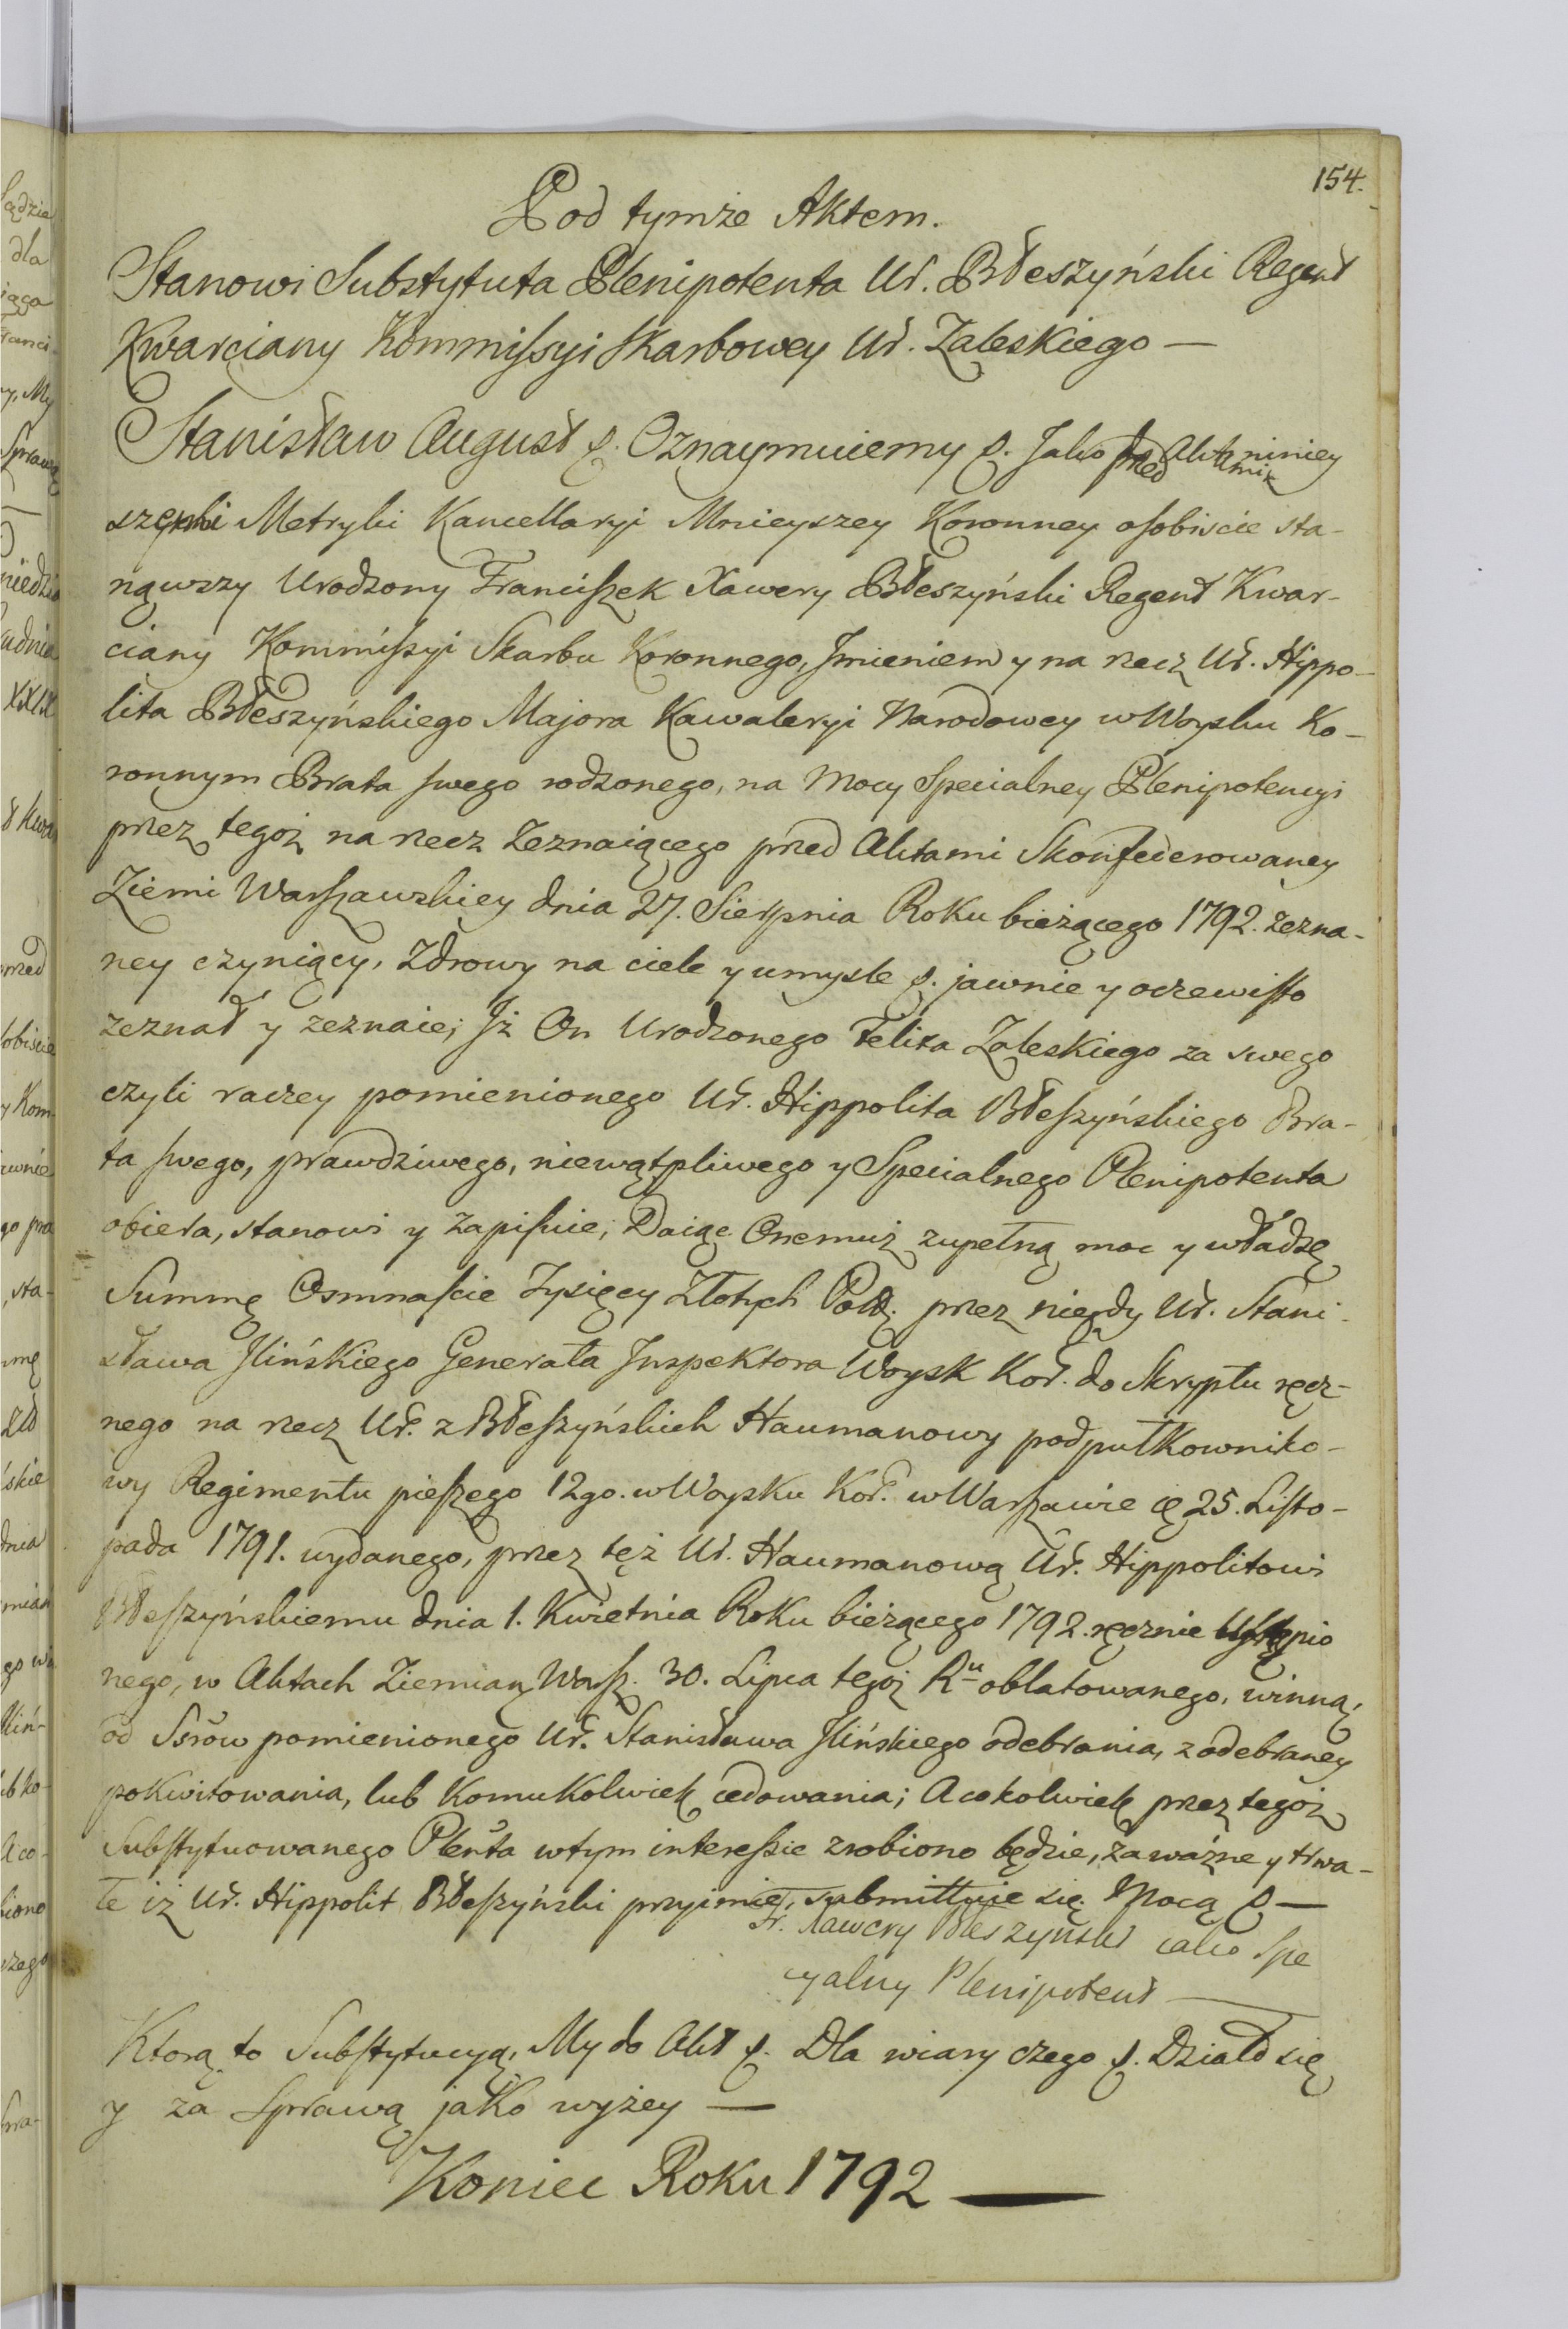 154.
Pod tymże Aktem.
Stanowi Substytuta Plenipotenta Uŕ. Błeszyński Regent
Kwarciany Kommissyi Skarbowey Uŕ. Zaleskiego —
Stanisław August &. Oznaymuiemy &. Jako przed Aktami niniey
szemi Metryki Kancellaryi Mnieyszey Koronney osobiscie sta-
nąwszy Urodzony Franciszek Xawery Błeszyński Regent Kwar-
ciany Kommissyi Skarbu Koronnego, Jmieniem y na rzecz Uŕ. Hippo-
lita Błeszyńskiego Majora Kawaleryi Narodowey w Woysku Ko-
ronnym Brata swego rodzonego, na mocy Specialney Plenipotencyi
przez tegoż na rzecz Zeznaiącego przed Aktami Skonfederowaney
Ziemi Warszawskiey dnia 27. Sierpnia Roku bieżącego 1792. zezna-
ney czyniący, Zdrowy na ciele y umysle &. jawnie y oczewisto
zeznał y zeznaie; Jż On Urodzonego Felixa Zaleskiego za swego
czyli raczey pomienionego Uŕ. Hippolita Błeszyńskiego Bra-
ta swego, prawdziwego, niewątpliwego y Specialnego Plenipotenta
obiera, stanowi y zapisuie; Daiąc Onemuż zupełną moc y władzę
Summę Osmnaście Tysięcy Złotych Polł. przez niegdy Uŕ. Stani-
sława Jlińskiego Generała Jnspektora Woysk Koŕ. do Skryptu ręcz-
nego na rzecz Uŕ. z Błeszyńskich Haumanowy podpułkowniko-
wy Regimentu pieszego 12go. w Woysku Koŕ. w Warszawie 25. Listo-
pada 1791. wydanego, przez tęż Uŕ. Haumanową Uŕ. Hippolitowi
Błeszyńskiemu dnia 1. Kwietnia Roku bieżącego 1792. ręcznie Ustąpio
nego, w Aktach Ziemian Warsz. 30. Lipca tegoż Ru oblatowanego, winną,
od Ssrow pomienionego Uŕ. Stanisława Jlińskiego odebrania, z odebraney
pokwitowania, lub komukolwiek cedowania; A cokolwiek przez tegoż
Substytuowanego Plenta w tym interessie zrobiono będzie, za ważne y trwa-
łe iż Uŕ. Hippolit Błeszyński przyimie, submittuie się. Mocą & —
Fr. Xawery Błeszyński iako Spe
cyalny Plenipotent —
Ktorą to Substytucyą, My do Akt &. Dla wiary czego &. Działo się
y za Sprawą jako wyżey —
Koniec Roku 1792 —